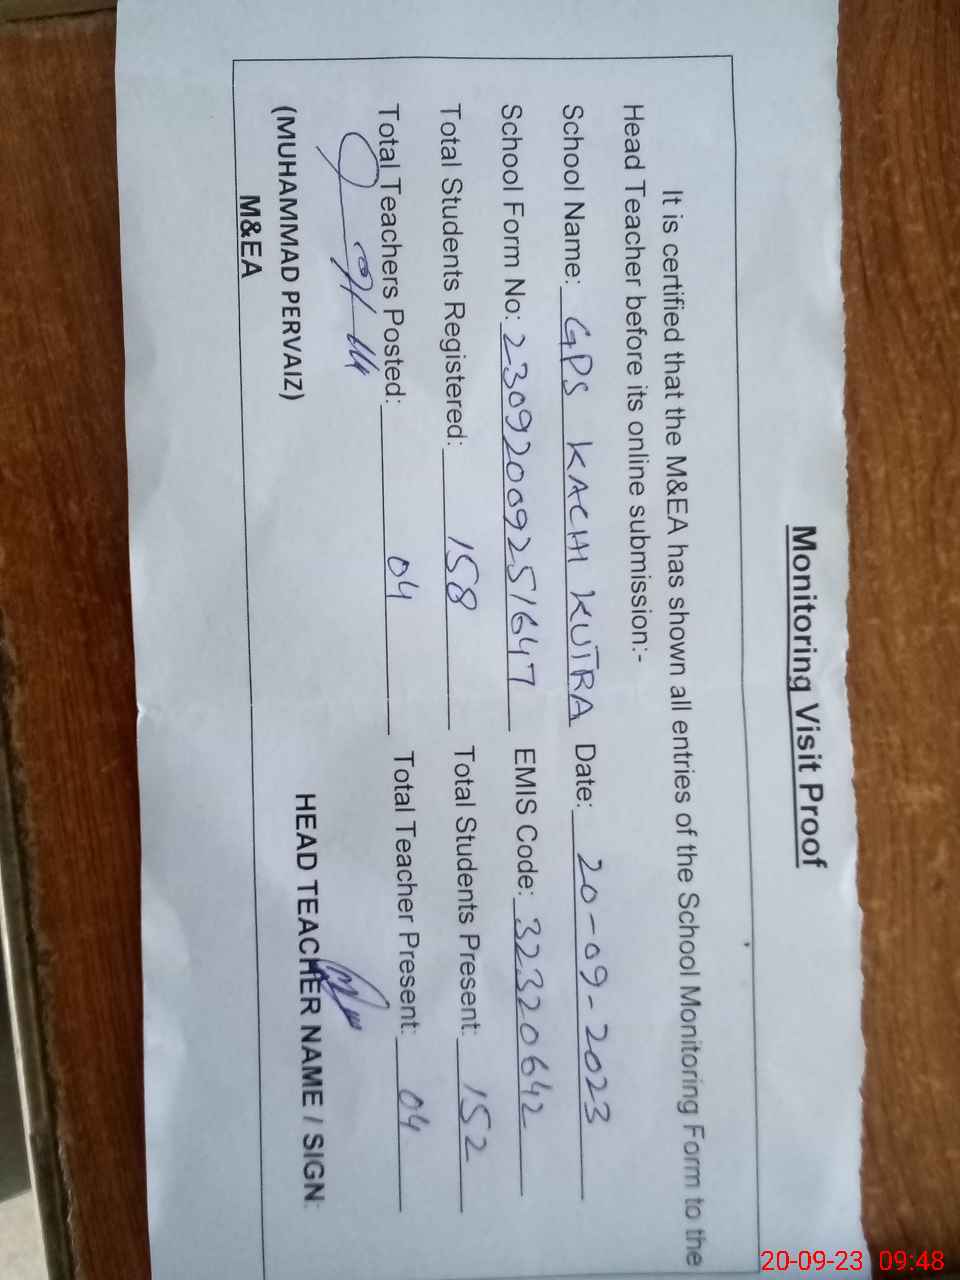 Monitoring Visit Proof
It is certified that the M&EA has shown all entries of the School Monitoring Form to the
Head Teacher before its online submission:-
School Name: GPS KACHI KUTRA Date: 20-09-2023
School Form No: 23092009251647 EMIS Code: 32320642
Total Students Registered: 158 Total Students Present: 152
Total Teachers Posted: 04 Total Teacher Present: 04
(MUHAMMAD PERVAIZ) HEAD TEACHER NAME / SIGN:
M&EA
20-09-23 09:48